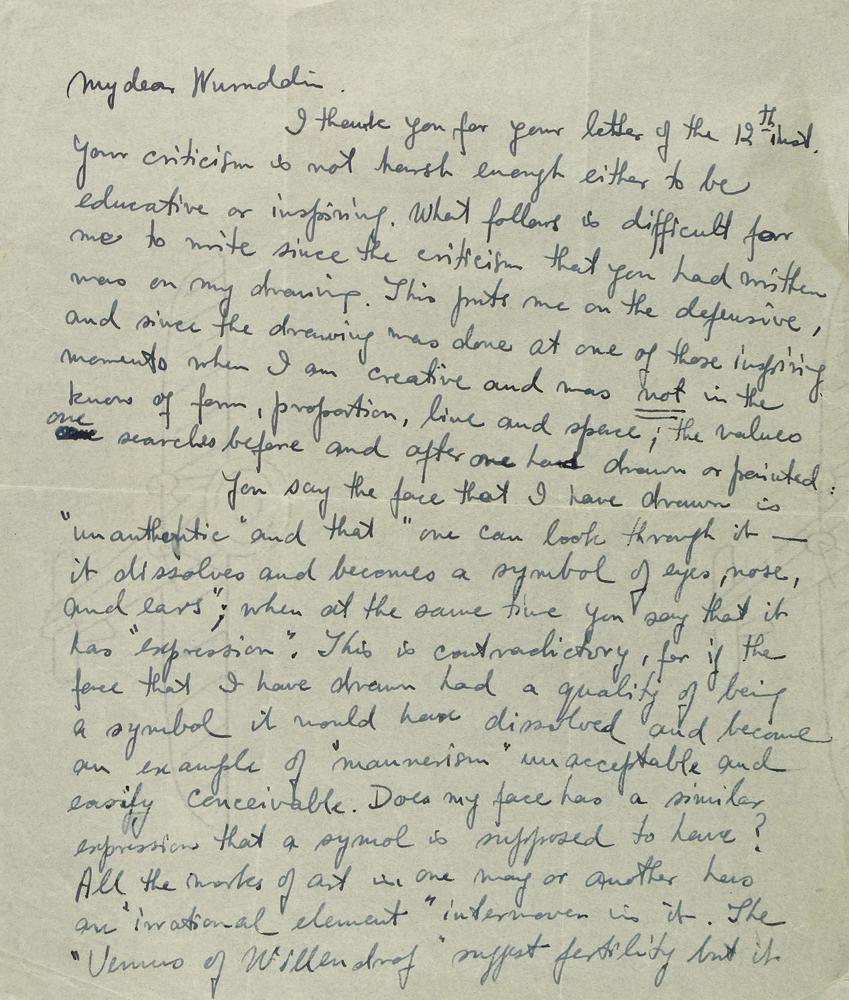 My dear Wurnddin.
I thank you for your letter of the 12th inst.
Your criticism is not harsh enough either to be
educative or inspiring. What follows is difficult for
me to write since the criticism that you had written
was on my drawing. This puts me on the defensive,
and since the drawing was done at one of those inspiring
moments when I am creative and was not in the
know of form, proportion, line and space; the values
one searches before and after one had drawn or painted:
You say the face that I have drawn is
"unauthentic" and that "one can look through it —
it dissolves and becomes a symbol of eyes, nose,
and ears"; when at the same time you say that it
has "expression". This is contradictory, for if the
face that I have drawn had a quality of being
a symbol it would have dissolved and become
an example of "mannerism" unacceptable and
easily conceivable. Does my face has a similar
expression that a symol is supposed to have?
All the works of art in one way or another has
an "irrational element" interwoven in it. The
"Venus of Willendrof" suggest fertility but it